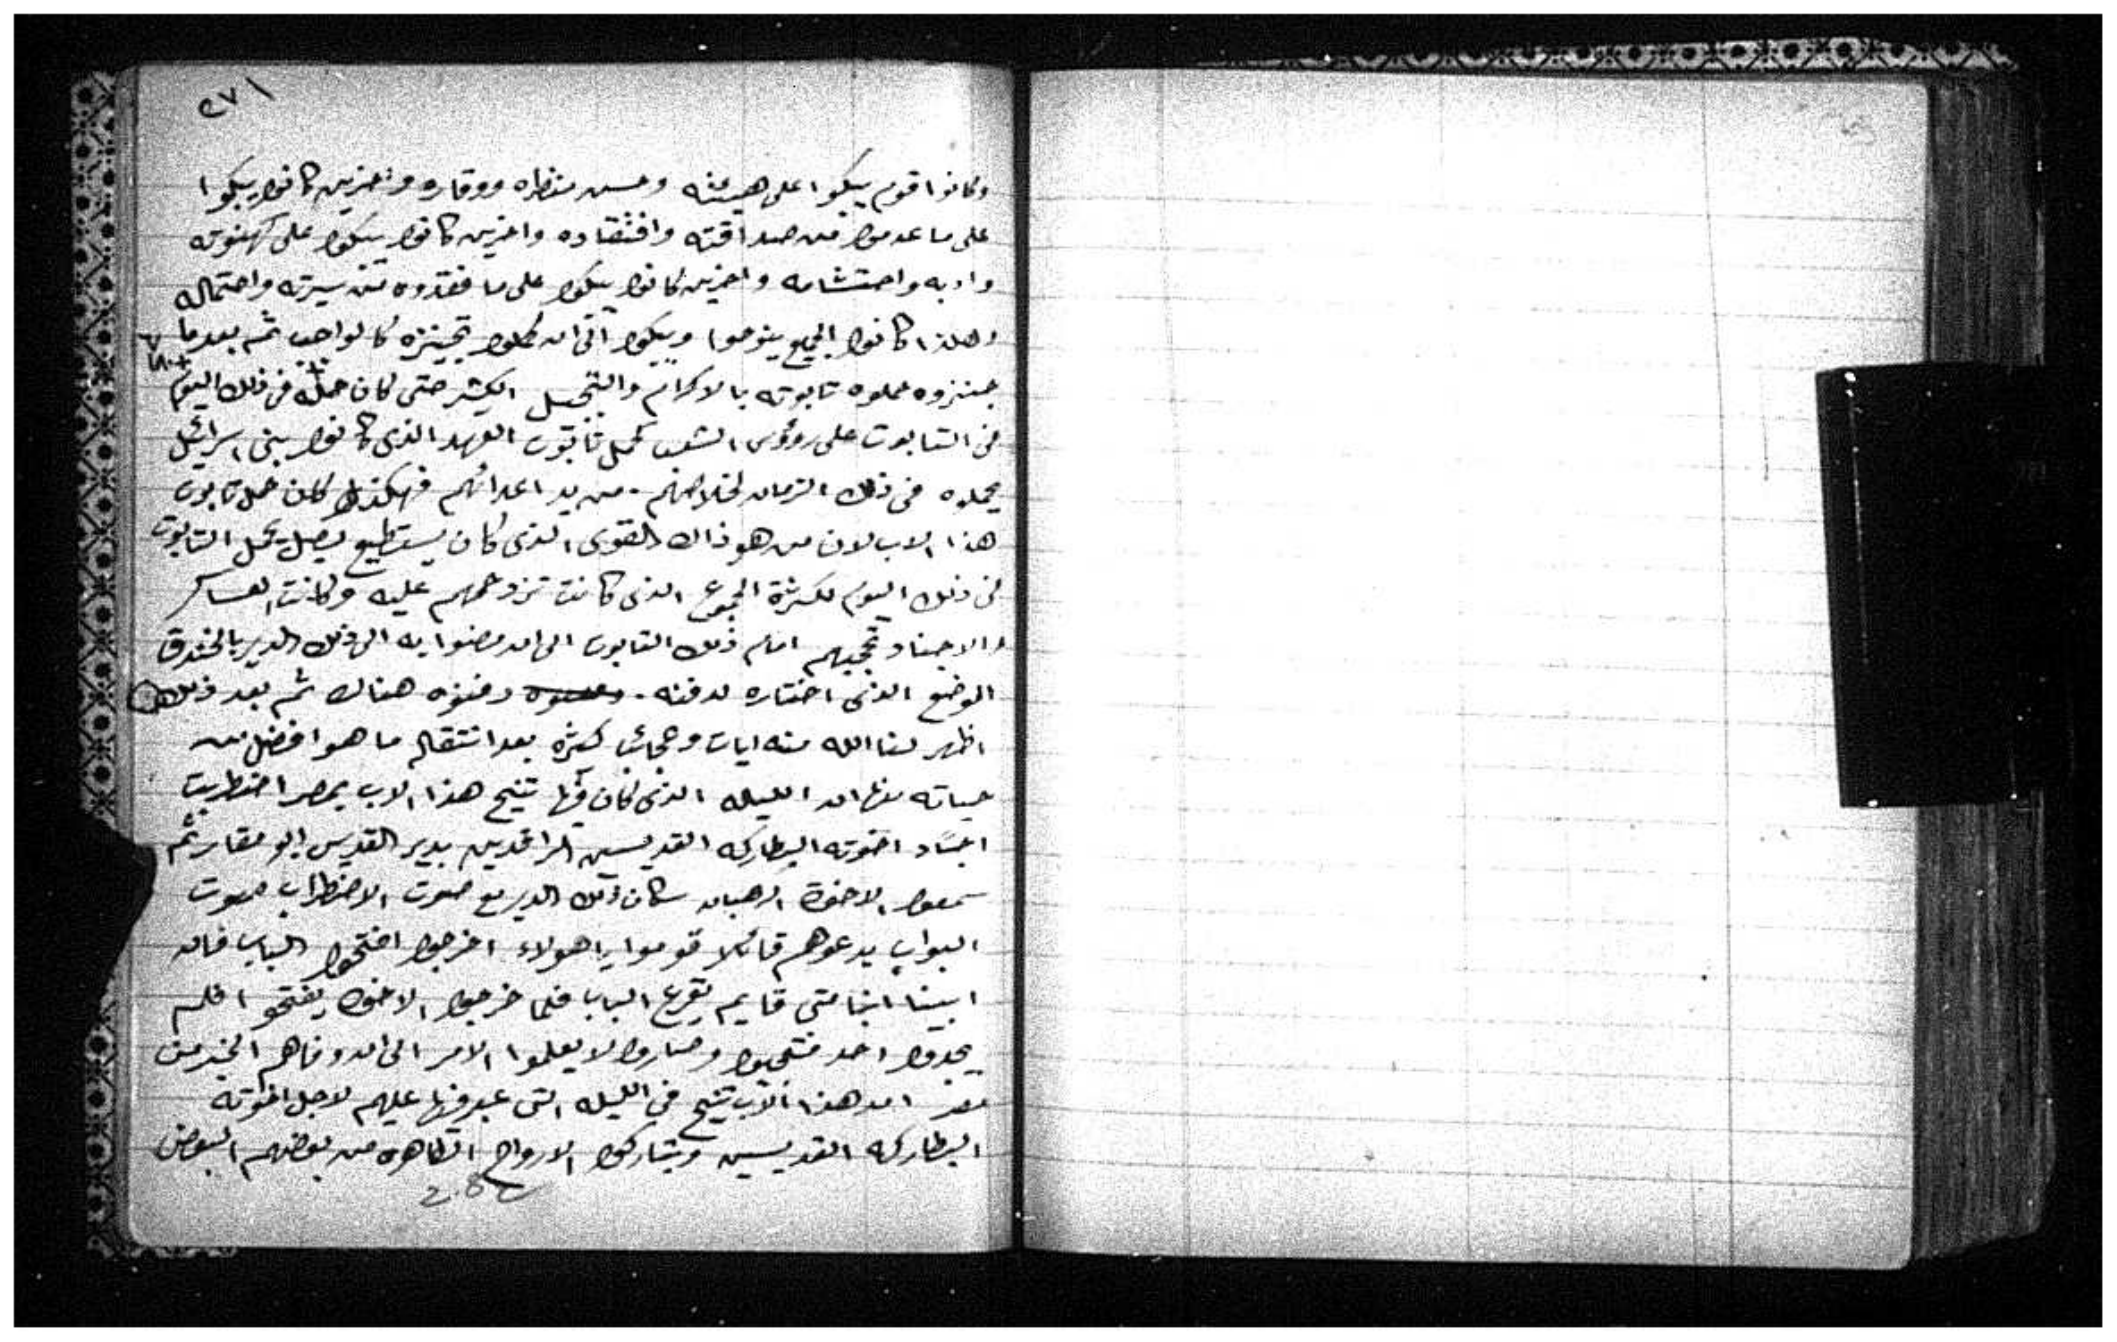 ٢٧١
وكانوا قوم يبكوا على هيئته وحسن منظره ووقاره واخرين كانوا يبكوا
على ما عدموا من صداقته وافتقاده واخرين كانوا يبكوا على كهنوته
وادبه واحتشامه واخرين كانوا يبكوا على ما فقدوه من سيرته واحتماله
ولهذا كانوا الجميع ينوحوا ويبكوا الى ان كملوا تجنيزه كالواجب ثم بعد ما
جنزوه حملوه تابوته بالاكرام والتبجيل الكثير حتى كان حمله في ذلك اليوم
في التابوت على رؤوس الشعب كحمل تابوت العهد الذى كانوا بنى اسرائيل
يحملوه في ذلك الزمان لخلاصهم من يد اعدائهم فهكذا كان حمل تابوت
هذا الاب لان من هو ذاك القوى الذى كان يستطيع يصل يحمل التابوت
في ذلك اليوم لكثرة الجموع الذى كانت تزدحمهم عليه وكانت العساكر
والاجناد تحجبهم امام ذلك التابوت الى ان مضوا به الى ذلك الدير بالخندق
الموضع الذى اختاره لدفنه دفنوه هناك ثم بعد ذلك
اظهر لنا الله منه ايات وعجائب كثيره بعد انتقاله ما هو افضل من
حياته منها ان الليله الذى كان فيها تنيح هذا الاب بمصر اضطربت
اجساد اخوته البطاركه القديسين الراقدين بدير القديس ابو مقار ثم
سمعوا الاخوة الرهبان سكان ذلك الدير مع صوت الاضطراب صوت
البواب يدعوهم قائلا قوموا يا هولاء اخرجوا افتحوا الباب فان
ابينا انبا متى قايم يقرع الباب فلما خرجوا الاخوه يفتحوا فلم
يجدوا احد فتعجبوا وصاروا لا يعلموا الامر الى ان وفاهم الخبر من
مصر ان هذا الاب تنيح في الليله التى عبر فيها عليهم لاجل اخوته
البطاركه القديسين ويتباركوا الارواح الطاهره من بعضهم البعض